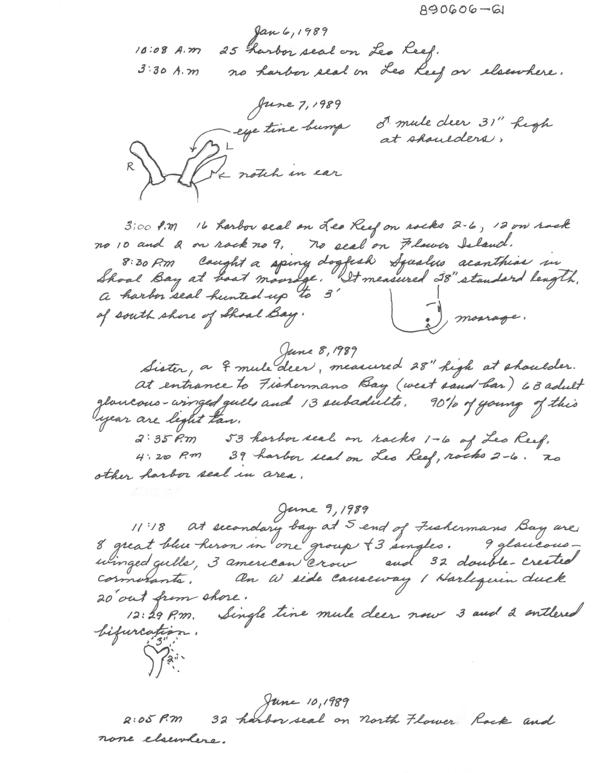 890606-61
Jan 6, 1989
10:08 A.M 25 harbor seal on Leo Reef.
3:30 A.M no harbor seal on Leo Reef or elsewhere.
June 7, 1989
eye tine bump ♂ mule deer 31" high
L at shoulders.
R
notch in ear
3:00 P.M 16 harbor seal on Leo Reef on rocks 2-6, 12 on rock
no 10 and 2 on rock no 9, no seal on Flower Island.
8:30 P.M Caught a spiny dogfish Squalus acanthias in
Shoal Bay at boat moorage. It measured 28" standard length.
a harbor seal hunted up to 3'
of south shore of Shoal Bay. moorage.
June 8, 1989
Sister, a ♀ mule deer, measured 28" high at shoulder.
at entrance to Fishermans Bay (west sand bar) 63 adult
glaucous-winged gulls and 13 subadults. 90% of young of this
year are light tan.
2:35 P.M 53 harbor seal on rocks 1-6 of Leo Reef.
4:20 P.M 39 harbor seal on Leo Reef, rocks 2-6. no
other harbor seal in area.
June 9, 1989
11:18 at secondary bay at S end of Fishermans Bay are
8 great blue heron in one group + 3 singles. 9 glaucous-
winged gulls, 3 american crow and 32 double-crested
cormorants. On W side causeway 1 Harlequin duck
20' out from shore.
12:29 P.M. Single tine mule deer now 3 and 2 antlered
bifurcation.
3"
2"
June 10, 1989
2:05 P.M 32 harbor seal on North Flower Rock and
none elsewhere.